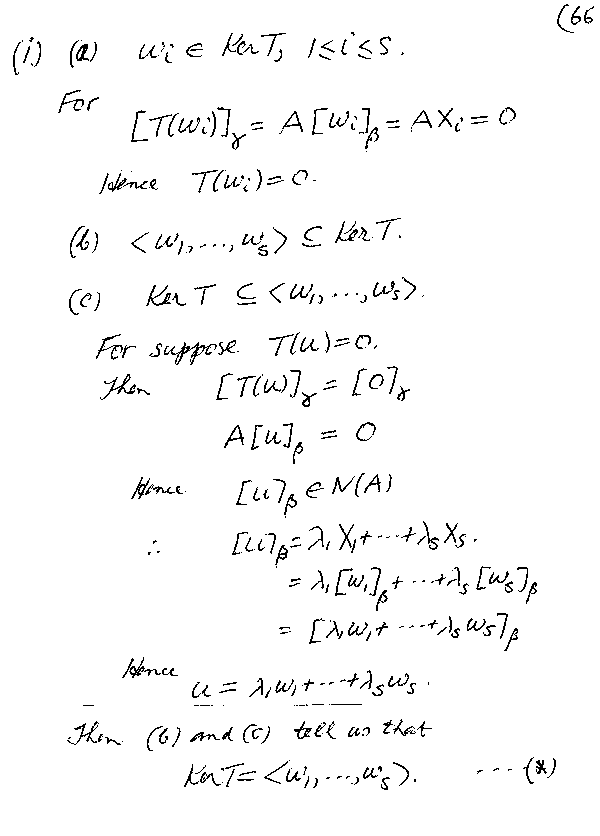 (66
(i) (a) wi ∈ Ker T, 1≤i≤s.
For
[T(wi)]γ = A[wi]β = AXi = 0
Hence T(wi) = 0.
(b) <w1, ..., ws> ⊆ Ker T.
(c) Ker T ⊆ <w1, ..., ws>.
For suppose T(u) = 0.
Then [T(u)]γ = [0]γ
A[u]β = 0
Hence [u]β ∈ N(A)
∴ [u]β = λ1X1 + ··· + λsXs.
= λ1[w1]β + ··· + λs[ws]β
= [λ1w1 + ··· + λsws]β
Hence
u = λ1w1 + ··· + λsws.
Then (b) and (c) tell us that
Ker T = <w1, ..., ws>. ---- (*)